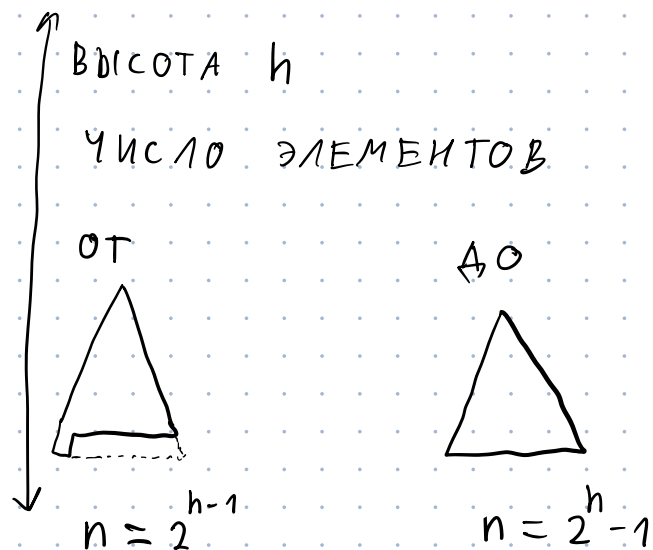 ВЫСОТА h
ЧИСЛО ЭЛЕМЕНТОВ
ОТ
ДО
n = 2^{h-1}
n = 2^h - 1